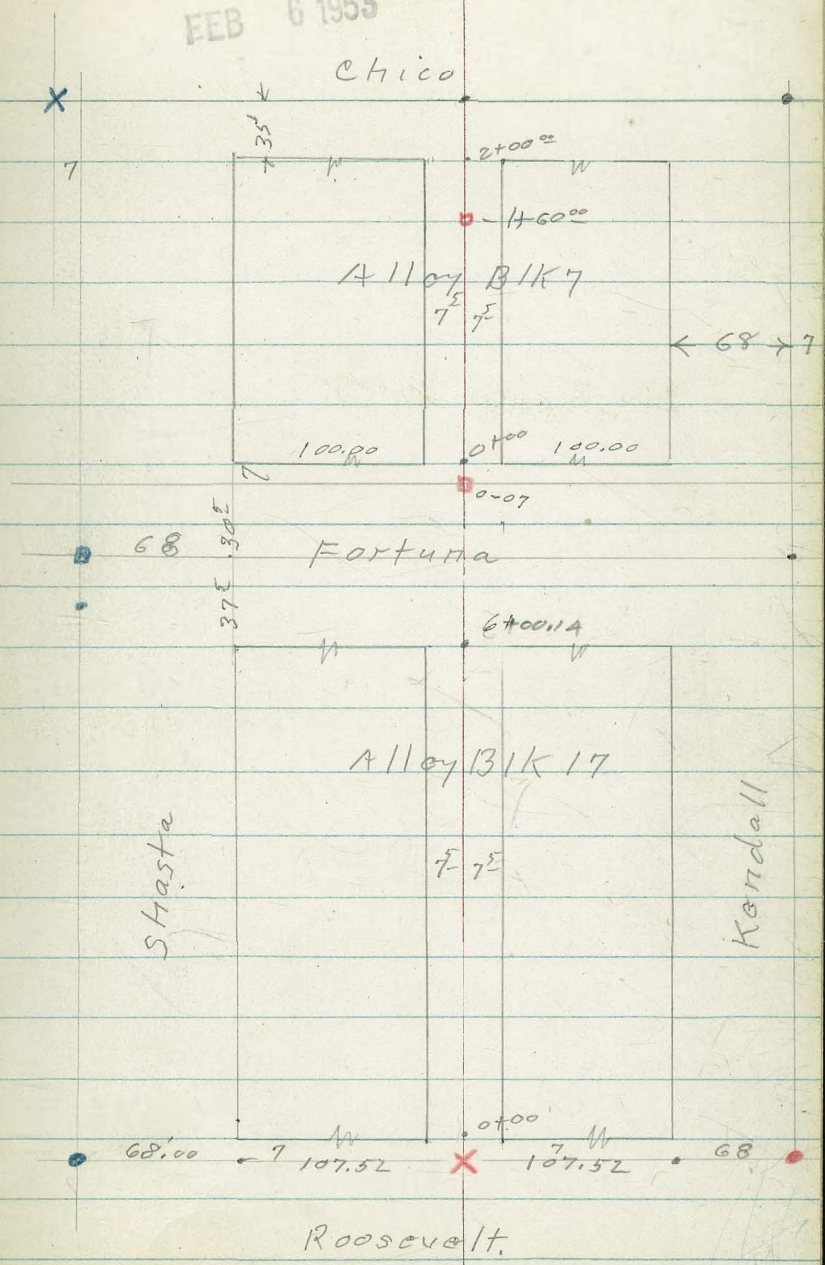 FEB 6 1953
Chico
35'
7
2+00 00
1+60 00
Alloy Blk 7
7 5 7 5
68 7
100.00 0+00 100.00
7
0-07
68 30 5 Fortuna
37 5
6+00.14
Alloy Blk 17
Shasta 7 5 7 5 Kendall
0+00
68.00 7 107.52 7 107.52 68
Roosevelt.